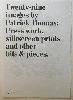 Twenty-nine
images by
Patrick Thomas:
Press work,
silkscreen prints
and other
bits & pieces.